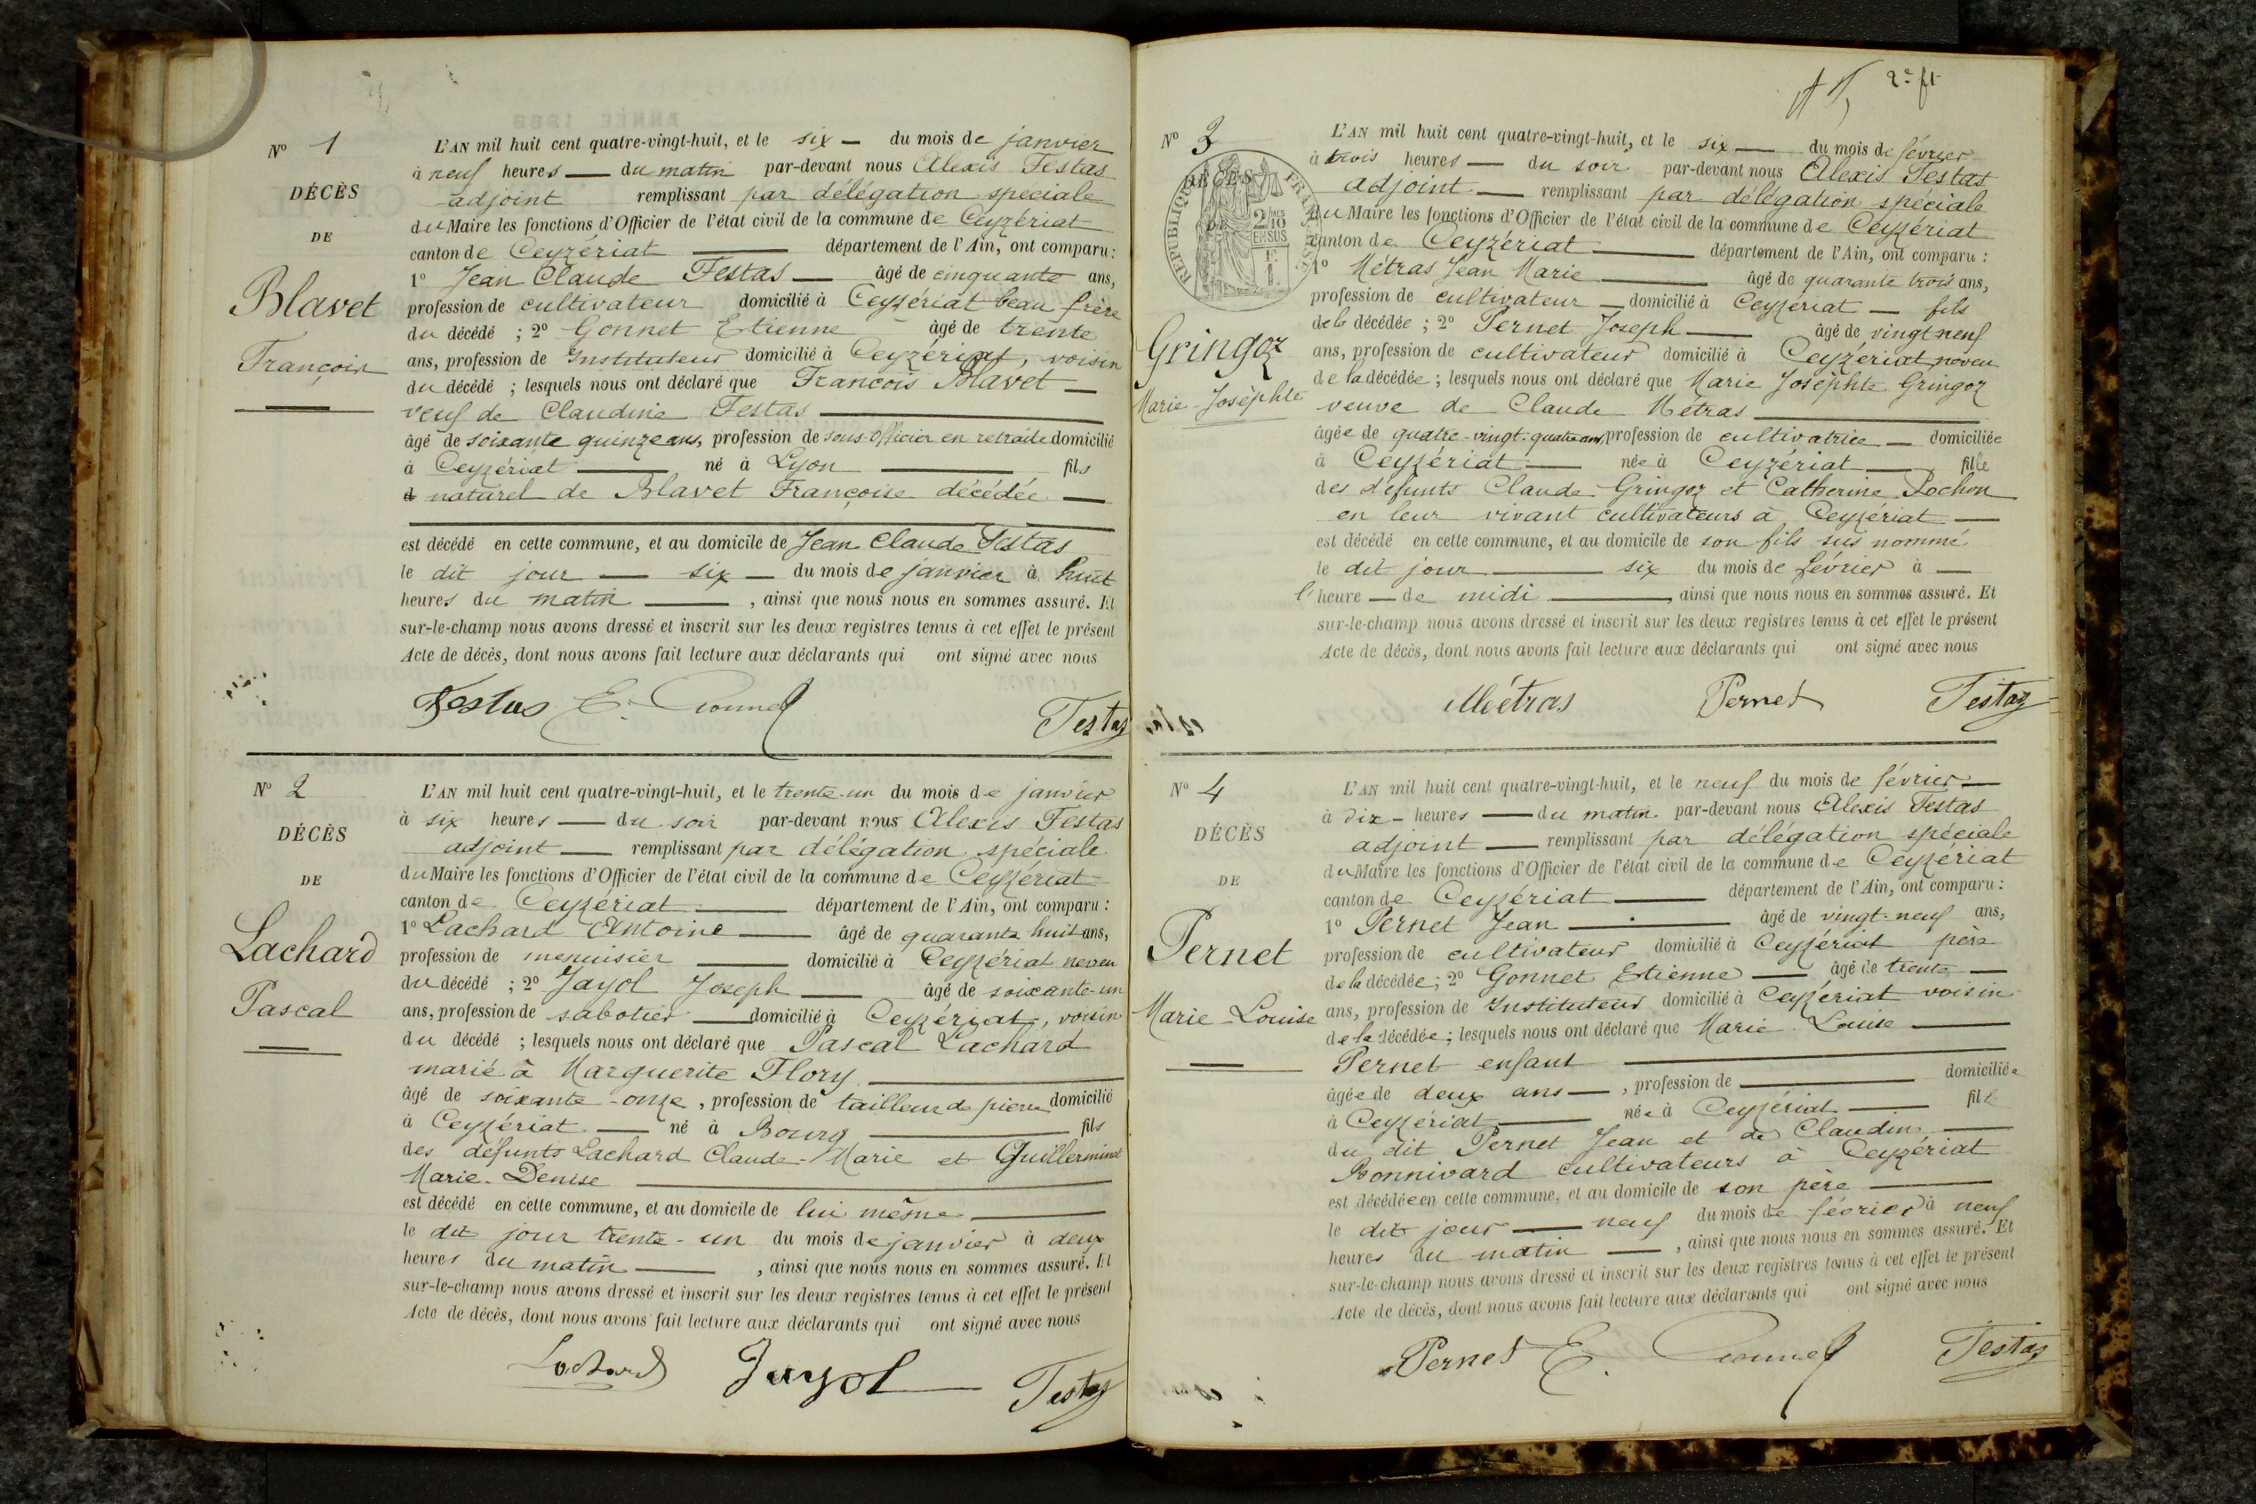 Nº 1
DÉCÈS
DE
Blavet
François
L'AN mil huit cent quatre-vingt-huit, et le six — du mois de janvier
à neuf heures — du matin par-devant nous Alexis Testas
adjoint remplissant par délégation speciale
du Maire les fonctions d'Officier de l'état civil de la commune de Ceyzériat
canton de Ceyzériat — département de l'Ain, ont comparu :
1º Jean Claude Testas — âgé de cinquante ans,
profession de cultivateur domicilié à Ceyzériat beau frère
du décédé ; 2º Gonnet Etienne — âgé de trente
ans, profession de Instituteur domicilié à Ceyzériat, voisin
du décédé ; lesquels nous ont déclaré que François Blavet —
veuf de Claudine Testas —
âgé de soixante quinze ans, profession de sous-officier en retraite domicilié
à Ceyzériat — né à Lyon — fils
naturel de Blavet Françoise décédée —
est décédé en cette commune, et au domicile de Jean Claude Testas
le dit jour — six — du mois de janvier à huit
heures du matin — , ainsi que nous nous en sommes assuré. Et
sur-le-champ nous avons dressé et inscrit sur les deux registres tenus à cet effet le présent
Acte de décès, dont nous avons fait lecture aux déclarants qui ont signé avec nous
Testas E. Gonnet Testas
Nº 2
DÉCÈS
DE
Lachard
Pascal
L'AN mil huit cent quatre-vingt-huit, et le trente-un du mois de janvier
à six heures — du soir par-devant nous Alexis Testas
adjoint — remplissant par délégation spéciale
du Maire les fonctions d'Officier de l'état civil de la commune de Ceyzériat
canton de Ceyzériat — département de l'Ain, ont comparu :
1º Lachard Antoine — âgé de quarante huit ans,
profession de menuisier — domicilié à Ceyzériat neveu
du décédé ; 2º Jayol Joseph — âgé de soixante-un
ans, profession de sabotier — domicilié à Ceyzériat, voisin
du décédé ; lesquels nous ont déclaré que Pascal Lachard
marié à Marguerite Flory —
âgé de soixante-onze, profession de tailleur de pierre domicilié
à Ceyzériat — né à Bourg — fils
des défunts Lachard Claude-Marie et Guillerminet
Marie-Denise —
est décédé en cette commune, et au domicile de lui même —
le dit jour trente-un du mois de janvier à deux
heures du matin — , ainsi que nous nous en sommes assuré. Et
sur-le-champ nous avons dressé et inscrit sur les deux registres tenus à cet effet le présent
Acte de décès, dont nous avons fait lecture aux déclarants qui ont signé avec nous
Lachard Jayol Testas
2e ft
Nº 3
DÉCÈS
DE
RÉPUBLIQUE FRANÇAISE
2/10 EN SUS
Gringoz
Marie-Joséphte
L'AN mil huit cent quatre-vingt-huit, et le six — du mois de février
à trois heures — du soir par-devant nous Alexis Testas
adjoint — remplissant par délégation spéciale
du Maire les fonctions d'Officier de l'état civil de la commune de Ceyzériat
canton de Ceyzériat — département de l'Ain, ont comparu :
1º Métras Jean Marie — âgé de quarante trois ans,
profession de cultivateur — domicilié à Ceyzériat — fils
de la décédée ; 2º Pernet Joseph — âgé de vingt neuf
ans, profession de cultivateur domicilié à Ceyzériat neveu
de la décédée ; lesquels nous ont déclaré que Marie Joséphte Gringoz
veuve de Claude Métras —
âgée de quatre-vingt-quatre ans, profession de cultivatrice — domiciliée
à Ceyzériat — née à Ceyzériat — fille
des défunts Claude Gringoz et Catherine Pochon
en leur vivant cultivateurs à Ceyzériat —
est décédé en cette commune, et au domicile de son fils sus nommé
le dit jour — six du mois de février à —
l'heure — de midi — , ainsi que nous nous en sommes assuré. Et
sur-le-champ nous avons dressé et inscrit sur les deux registres tenus à cet effet le présent
Acte de décès, dont nous avons fait lecture aux déclarants qui ont signé avec nous
Métras Pernet Testas
Nº 4
DÉCÈS
DE
Pernet
Marie-Louise
L'AN mil huit cent quatre-vingt-huit, et le neuf du mois de février —
à dix - heures — du matin par-devant nous Alexis Testas
adjoint — remplissant par délégation spéciale
du Maire les fonctions d'Officier de l'état civil de la commune de Ceyzériat
canton de Ceyzériat — département de l'Ain, ont comparu :
1º Pernet Jean — âgé de vingt-neuf ans,
profession de cultivateur domicilié à Ceyzériat père
de la décédée ; 2º Gonnet Etienne — âgé de trente —
ans, profession de Instituteur domicilié à Ceyzériat voisin
de la décédée ; lesquels nous ont déclaré que Marie Louise —
Pernet enfant —
âgée de deux ans — , profession de — domiciliée
à Ceyzériat — née à Ceyzériat — fille
du dit Pernet Jean et de Claudine —
Bonnivard cultivateurs à Ceyzériat
est décédée en cette commune, et au domicile de son père —
le dit jour — neuf du mois de février à neuf
heures du matin — , ainsi que nous nous en sommes assuré. Et
sur-le-champ nous avons dressé et inscrit sur les deux registres tenus à cet effet le présent
Acte de décès, dont nous avons fait lecture aux déclarants qui ont signé avec nous
Pernet E. Gonnet Testas